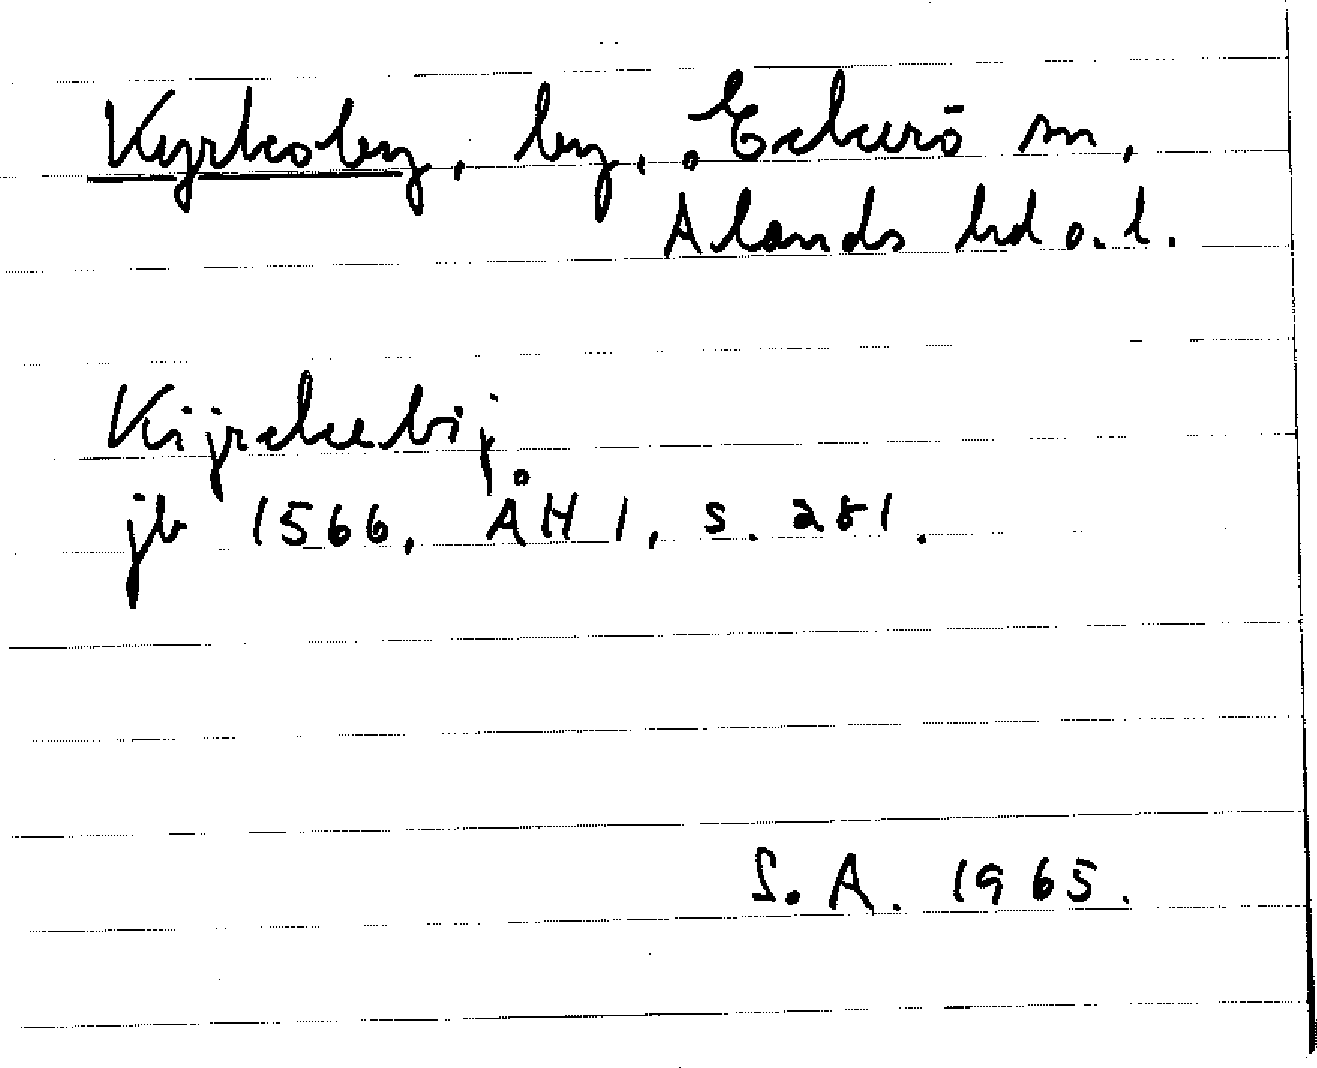 Kyrkoby, by, Eckerö sn,
Ålands hd o. l.
Kijrckebij
jb 1566, ÅH 1, s. 281.
S. A. 1965.